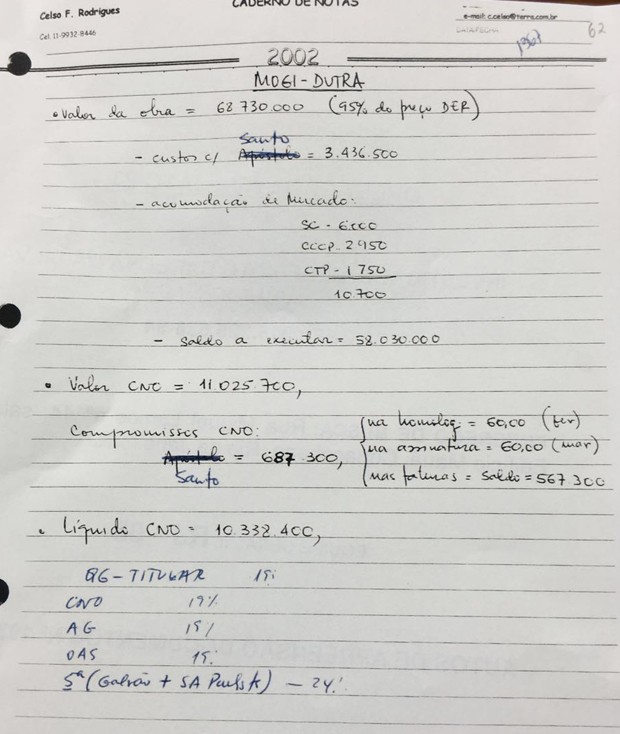 CADERNO DE NOTAS
Celso F. Rodrigues
Cel. 11-9932-8446
e-mail: c.celso@terra.com.br
1367
62
2002
MOGI-DUTRA
• Valor da obra = 68 730.000 (95% do preço DER)
Santo
- custos c/ Apóstolo = 3.436.500
- acomodação de Mercado:
SC - 6.000
CCCP - 2 950
CTP - 1 750
10.700
- Saldo a executar = 58.030.000
• Valor CNO = 11.025.700,
Compromissos CNO:
Apóstolo = 687 300,
Santo
na homolog. = 60,00 (fev)
na assinatura = 60,00 (mar)
nas faturas = Saldo = 567 300
• Líquido CNO = 10.338.400,
QG-TITULAR 19%
CNO 19%
AG 19%
OAS 19%
5ª (Galvão + SA Paulista) - 24%